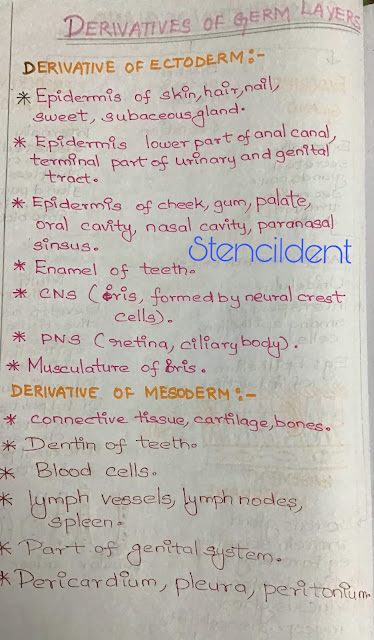 DERIVATIVES OF GERM LAYERS
DERIVATIVE OF ECTODERM:-
* Epidermis of skin, hair, nail,
sweet, subaceous gland.
* Epidermis lower part of anal canal,
terminal part of urinary and genital
tract.
* Epidermis of cheek, gum, palate,
oral cavity, nasal cavity, paranasal
sinsus.
Stencildent
* Enamel of teeth.
* CNS (iris, formed by neural crest
cells).
* PNS (retina, ciliary body).
* Musculature of iris.
DERIVATIVE OF MESODERM:-
* connective tissue, cartilage, bones.
* Dentin of teeth.
* Blood cells.
* lymph vessels, lymph nodes,
spleen.
* Part of genital system.
* Pericardium, pleura, peritonium.